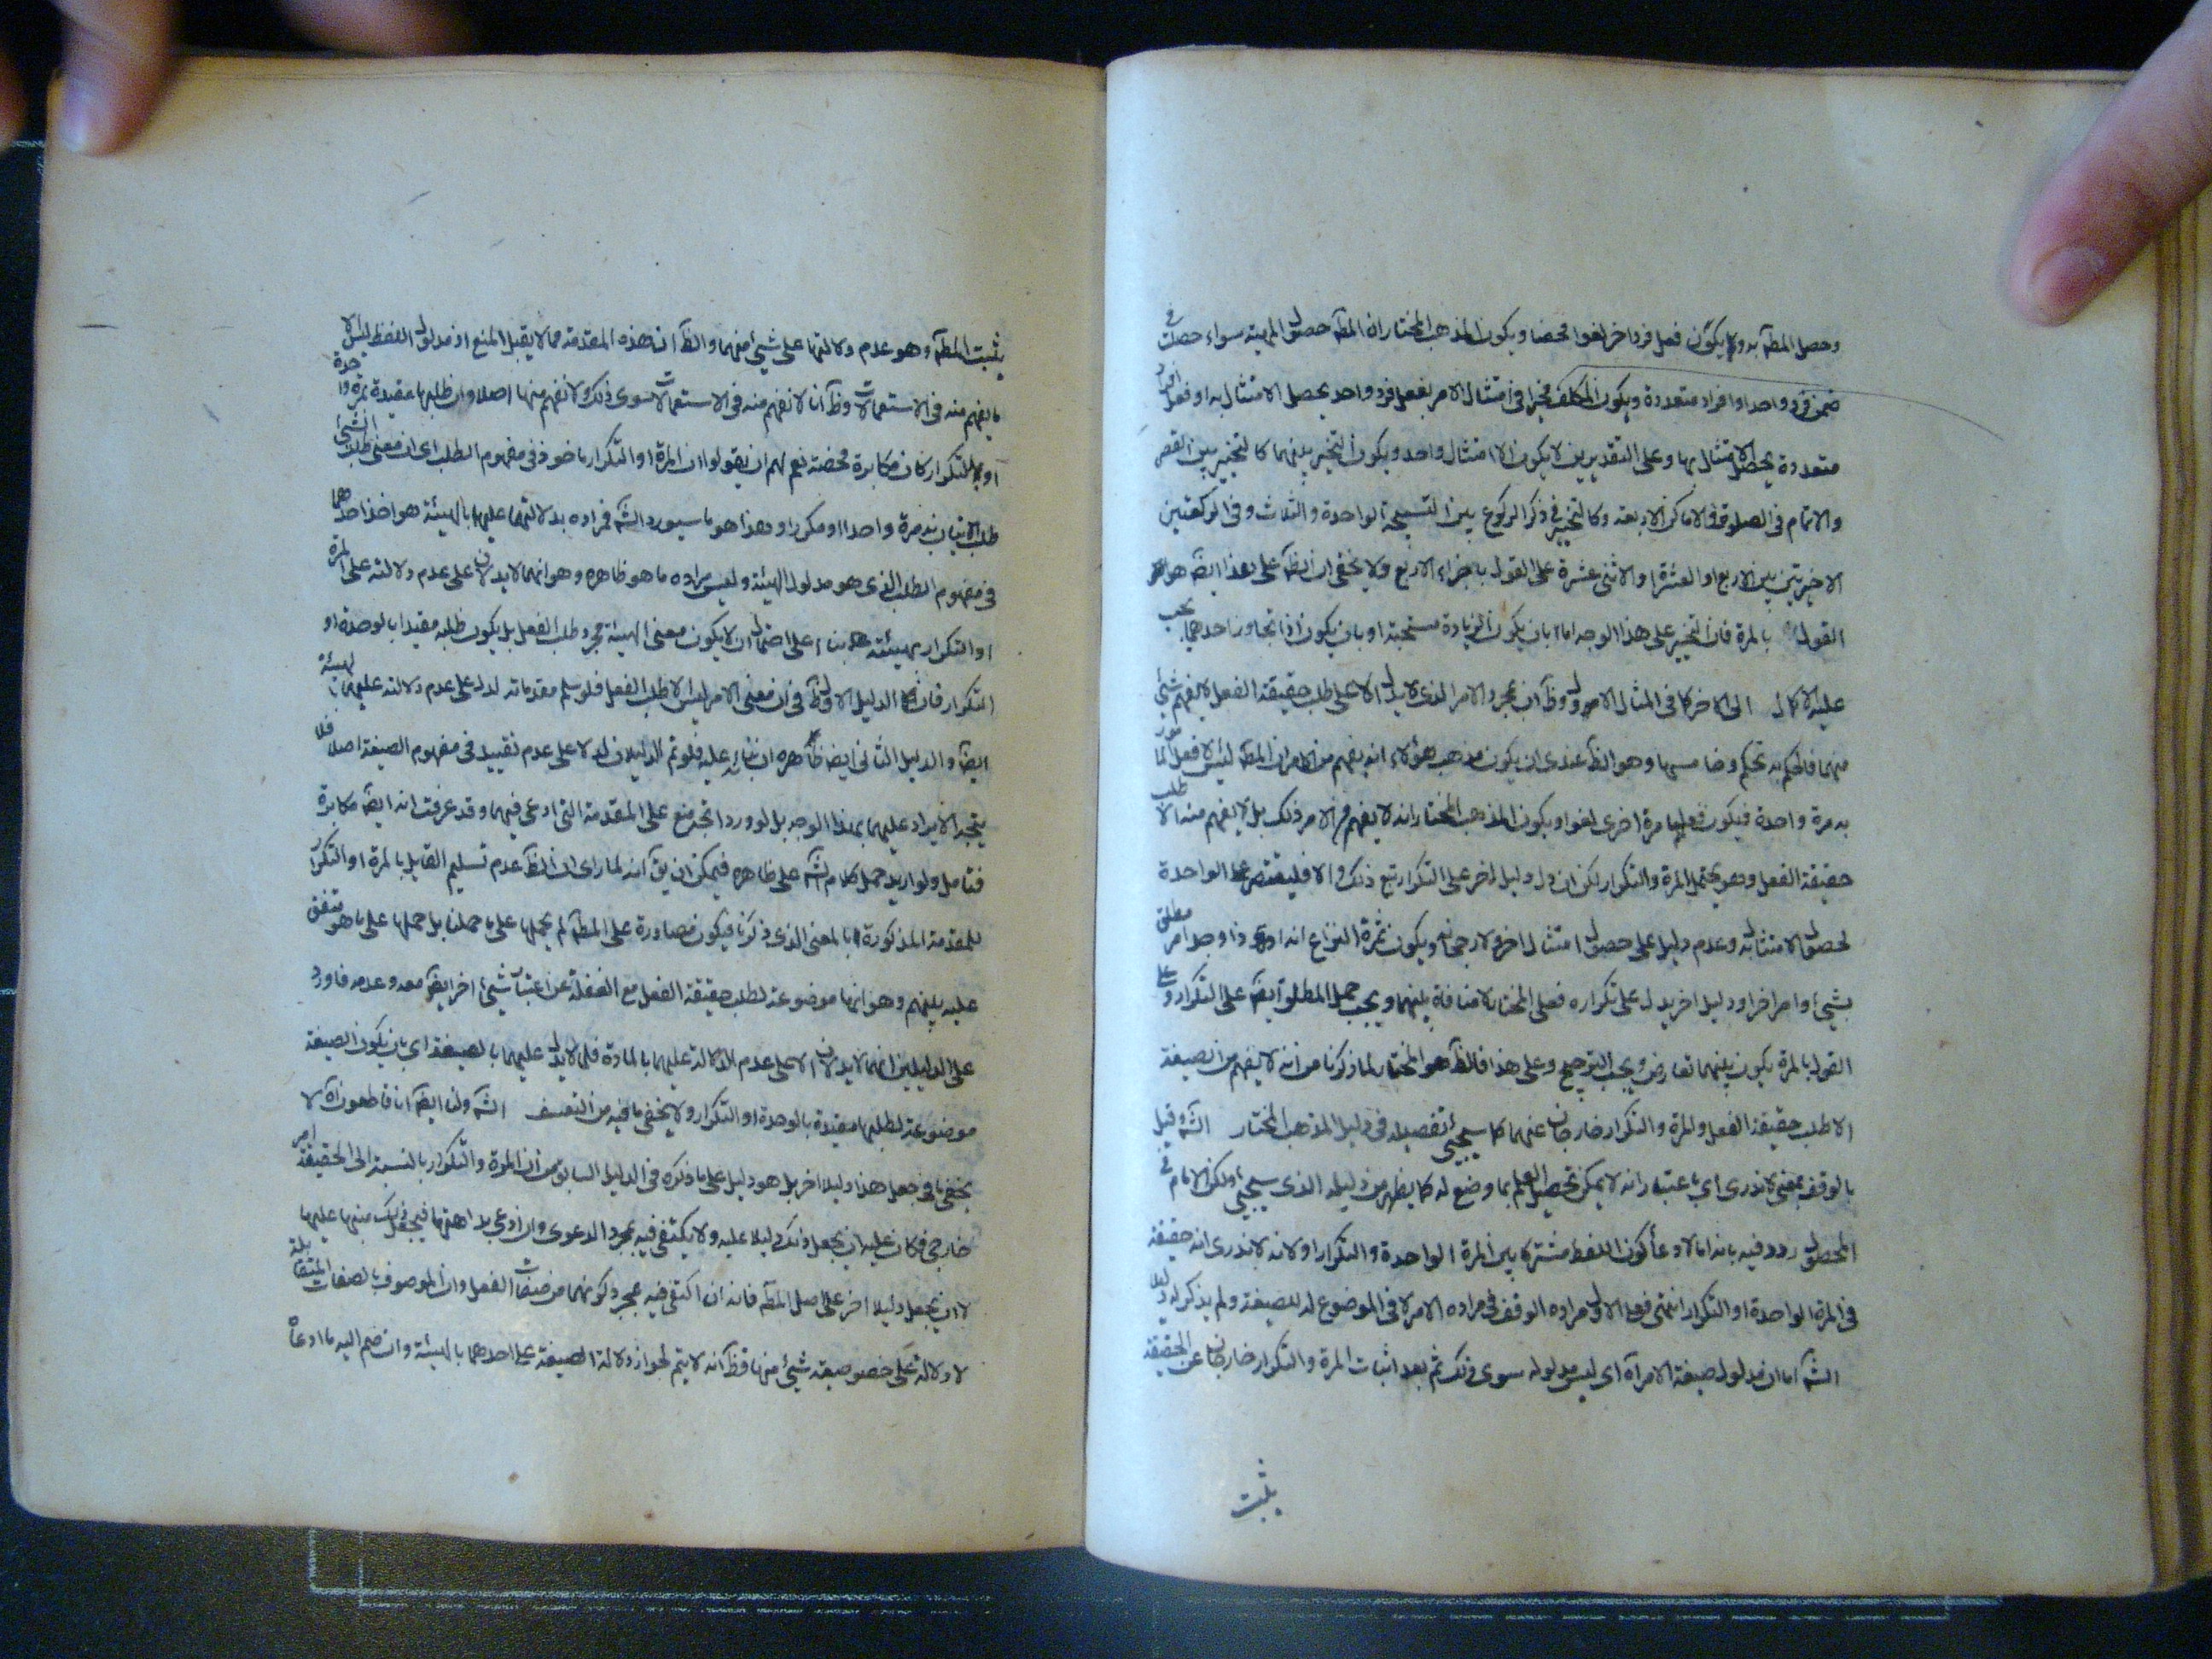 وحصل المطلٓ به ويكون فعل فرد اخر لغوا محضا ويكون المذهب المختار ان المطلٓ حصول المهية سواء حصلت في
ضمن فرد واحد او افراد متعددة ويكون المكلف مخيرا في امتثال الامر بفعل فرد واحد يحصل الامتثال به او فعل افراد
متعددة يحصل الامتثال بها وعلى التقديرين لا يكون الا امتثال واحد ويكون التخيير بينهما كالتخيير بين القصر
والاتمام في الصلوة في الاماكن الاربعة وكالتخيير في ذكر الركوع بين التسبيحة الواحدة والثلاث وفي الركعتين
الاخيرتين بين الاربع او العشرة او الاثنى عشرة على القول باجزاء الاربع ولا يخفى ان الظٓ على هذا ايضٓ هو
القول بالمرة فان التخيير على هذا الوجه اما بان يكون الزيادة مستحبة او بان يكون اذا تجاوز احدهما يجب
عليه الاكمال الى الاخر كما في المثال الاول وظٓ ان مجرد الامر الذي لا يدل الا على طلب حقيقة الفعل لا يفهم شئ
منهما فالحكم به تحكم وخامسها وهو الظٓ عندى ان يكون مذهب هؤلاء انه يفهم من الامر ان المطلٓ ليس الا فعل المامور
به مرة واحدة فيكون فعلها مرة اخرى لغوا ويكون المذهب المختار انه لا يفهم من الامر ذلك بل لا يفهم منه الا طلب
حقيقة الفعل وهو يحتمل المرة والتكرار لكن ان دل دليل اخر على التكرار تبع ذلك والا فليقتصر على الواحدة
لحصول الامتثال به وعدم دليل على حصول امتثال اخر ولا رجحانه ويكون ثمرة النزاع انه اذا وجد امر مطلق
بشئ وامر اخر او دليل اخر يدل على تكراره فعلى المختار لا منافاة بينهما ويجب حمل المطلق ايضٓ على التكرار وعلى
القول بالمرة يكون بينهما تعارض ويجب الترجيح وعلى هذا فالظٓ هو المختار لما ذكرنا من انه لا يفهم من الصيغة
الا طلب حقيقة الفعل والمرة والتكرار خارجان عنهما كما سيجيئ تفصيله في دليل المذهب المختار الشٓه وقيل
بالوقف بمعنى لا ندرى اي باعتبار انه لا يمكن تحصيل العلم بما وضع له كما يظهر من دليله الذي سيجيئ ولكن الامام في
المحصول ردد فيه بانه اما لادعاء كون اللفظ مشتركا بين المرة الواحدة والتكرار او لانه لا ندرى انه حقيقة
في المرة الواحدة او التكرار انتهى فعلى الاول مراده الوقف في مراده الامر لا في الموضوع له للصيغة ولم يذكر له دليلا
الشٓه اما ان مدلول صيغة الامر آه اي ليس مدلوله سوى ذلك ثم بعد اثبات المرة والتكرار خارجان عن الحقيقة
يثبت
يثبت المطلٓ وهو عدم دلالتها على شئ منهما والظٓ ان هذه المقدمة مما لا يقبل المنع اذ مدلول اللفظ ليس الا
ما يفهم منه في الاستعمالات وظٓ انا لا نفهم منه في الاستعمالات سوى ذلك ولا نفهم منها اصلا وان طلبها مقيدة بمرة واحدة
او بالتكرار كان مكابرة محضة نعم لهم ان يقولوا ان المرة او التكرار ماخوذ في مفهوم الطلب اي ان معنى طلب الشئ
طلب الاتيان به مرة واحدا او مكررا وهذا هو ما سيورده الشٓه فمراده بدلالتهما عليهما بالهيئة هو اخذ احدهما
في مفهوم الطلب الذي هو مدلول الهيئة وليس مراده ما هو ظاهره وهو انهما لا يدلان على عدم دلالته على المرة
او التكرار بهيئته بناء على احتمال ان لا يكون معنى الهيئة مجرد طلب الفعل بل يكون طلبه مقيدا بالوحدة او
التكرار فان الدليل الاول ظٓ في ان معنى الامر ليس الا طلب الفعل فلو سلم مقدماته لدل على عدم دلالته عليهما بالهيئة
ايضٓ والدليل الثاني ايضا ظاهره ان بنائه عليه فلو تم الدليلان لدلا على عدم تقييد في مفهوم الصيغة اصلا فلا
يتجه الايراد عليهما بهذا الوجه بل لو ورد اتجه منع على المقدمة التي ادعى فيهما وقد عرفت انه ايضٓ مكابرة
فتامل ولو اريد حمل كلام الشٓه على ظاهره فيمكن ان يقٓ انه لما راى ان الظٓ عدم تسليم القايل بالمرة او التكرار
للمقدمة المذكورة بالمعنى الذي ذكرنا فيكون مصادرة على المطلٓ لم يحملها على ما حملنا بل حملها على ما هو متفق
عليه بينهم وهو انها موضوعة لطلب حقيقة الفعل مع الغفلة عن اعتبار شئ اخر ايضٓ معه وعدمه فاورد
على الدليلين انهما لا يدلان الا على عدم الدلالة عليهما بالمادة فلم لا يدل عليهما بالصيغة اي بان يكون الصيغة
موضوعة لطلبها مقيدة بالوحدة او التكرار ولا يخفى ما فيه من التعسف الشٓه ولنا ايضٓ انا قاطعون آه لا
يخفى ما في جعل هذا دليلا اخر بل هو دليل على ما ذكره في الدليل السابق من ان المرة والتكرار بالنسبة الى الحقيقة امر
خارجي فكان عليه ان يجعل ذلك دليلا عليه ولا يكتفى فيه بمجرد الدعوى وان ادعى بداهتها فيجعل ذلك منبها عليها
لا ان يجعل دليلا اخر على اصل المطلٓ فانه ان اكتفى فيه بمجرد كونهما من صفات الفعل وان الموصوف بالصفات المتقابلة
لا دلالة على خصوصية شئ منها فظٓ انه لا يتم لجواز دلالة الصيغة على احدهما بالهيئة وان ضم اليه ما ادعاه